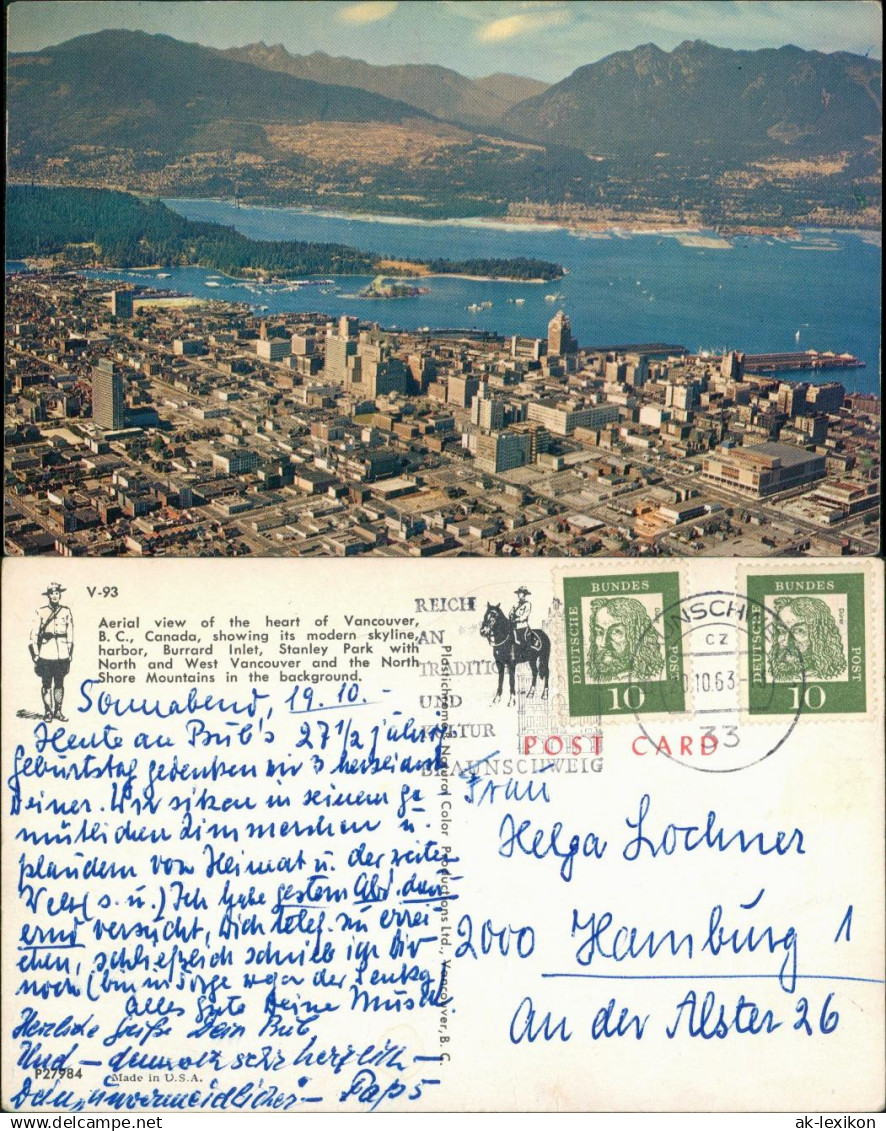 V-93
Aerial view of the heart of Vancouver,
B. C., Canada, showing its modern skyline,
harbor, Burrard Inlet, Stanley Park with
North and West Vancouver and the North
Shore Mountains in the background.
REICH
AN
TRADITION
UND
KULTUR
BRAUNSCHWEIG
DEUTSCHE BUNDESPOST
10
DEUTSCHE BUNDESPOST
Dürer
10
CZ
20.10.63
33
POST CARD
Plastichrome
Natural Color Productions Ltd., Vancouver, B. C.
Sonnabend, 19.10.-
Heute an Bub's 27 1/2 jähr.
Geburtstag gedenken wir 3
Deiner. Wir sitzen in seinem ge-
mütlichen Zimmerchen u.
plaudern von Heimat u. der weiten
Welt (s. u.) Ich habe gestern Abd. dau-
ernd versucht, Dich telef. zu errei-
chen, schließlich schrieb ich Dir
noch (bin in Sorge wegen der
Alles Gute Deine
Herzliche Grüße Dein Bub
Und - sehr herzlich -
Dein "unvermeidlicher" - Paps
Frau
Helga Lochner
2000 Hamburg 1
An der Alster 26
P27984
Made in U.S.A.
ak-lexikon